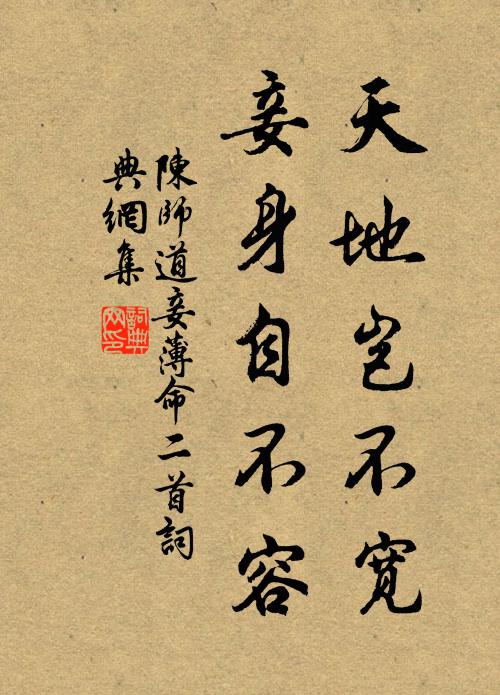 天地豈不寬
妾身自不容
陳師道妾薄命二首詞
典網集
詞典
网印